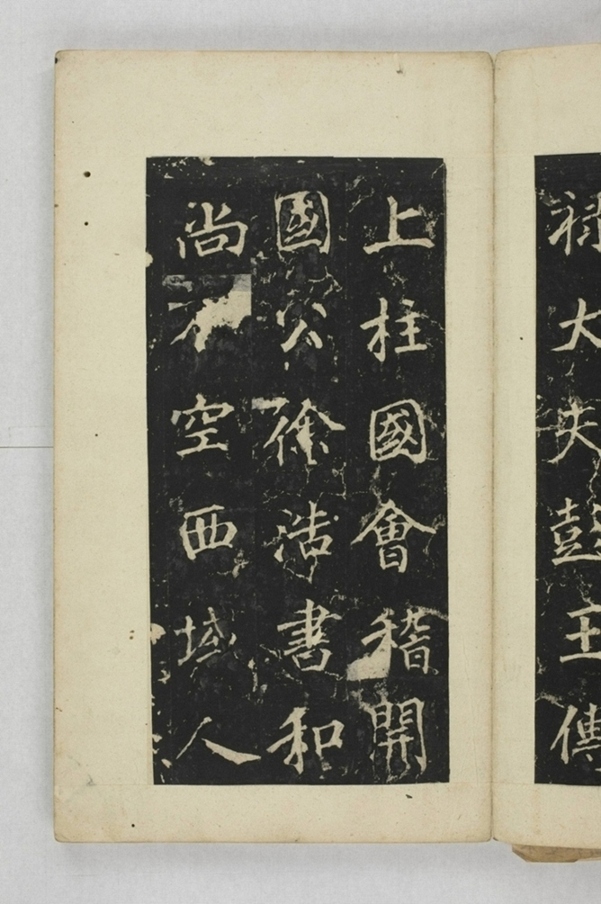 祿大夫彭王傅
上柱國會稽開
國公徐浩書和
尚不空西域人